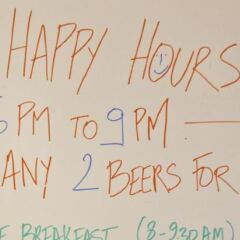 HAPPY HOURS
PM TO 9 PM —
ANY 2 BEERS FOR
BREAKFAST (8-930AM)